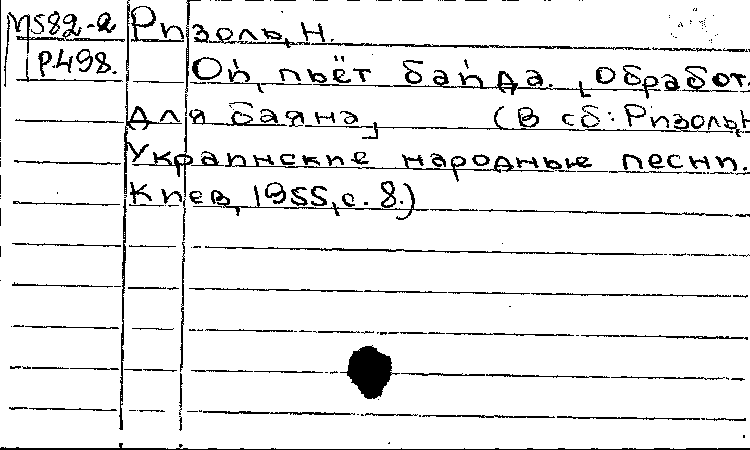 М582-2 Ризоль, Н.
Р498.
Ой, пьёт байда. [Обработ.
для баяна] (В сб: Ризоль Н
Украинские народные песни.
Киев, 1955, с. 8.)